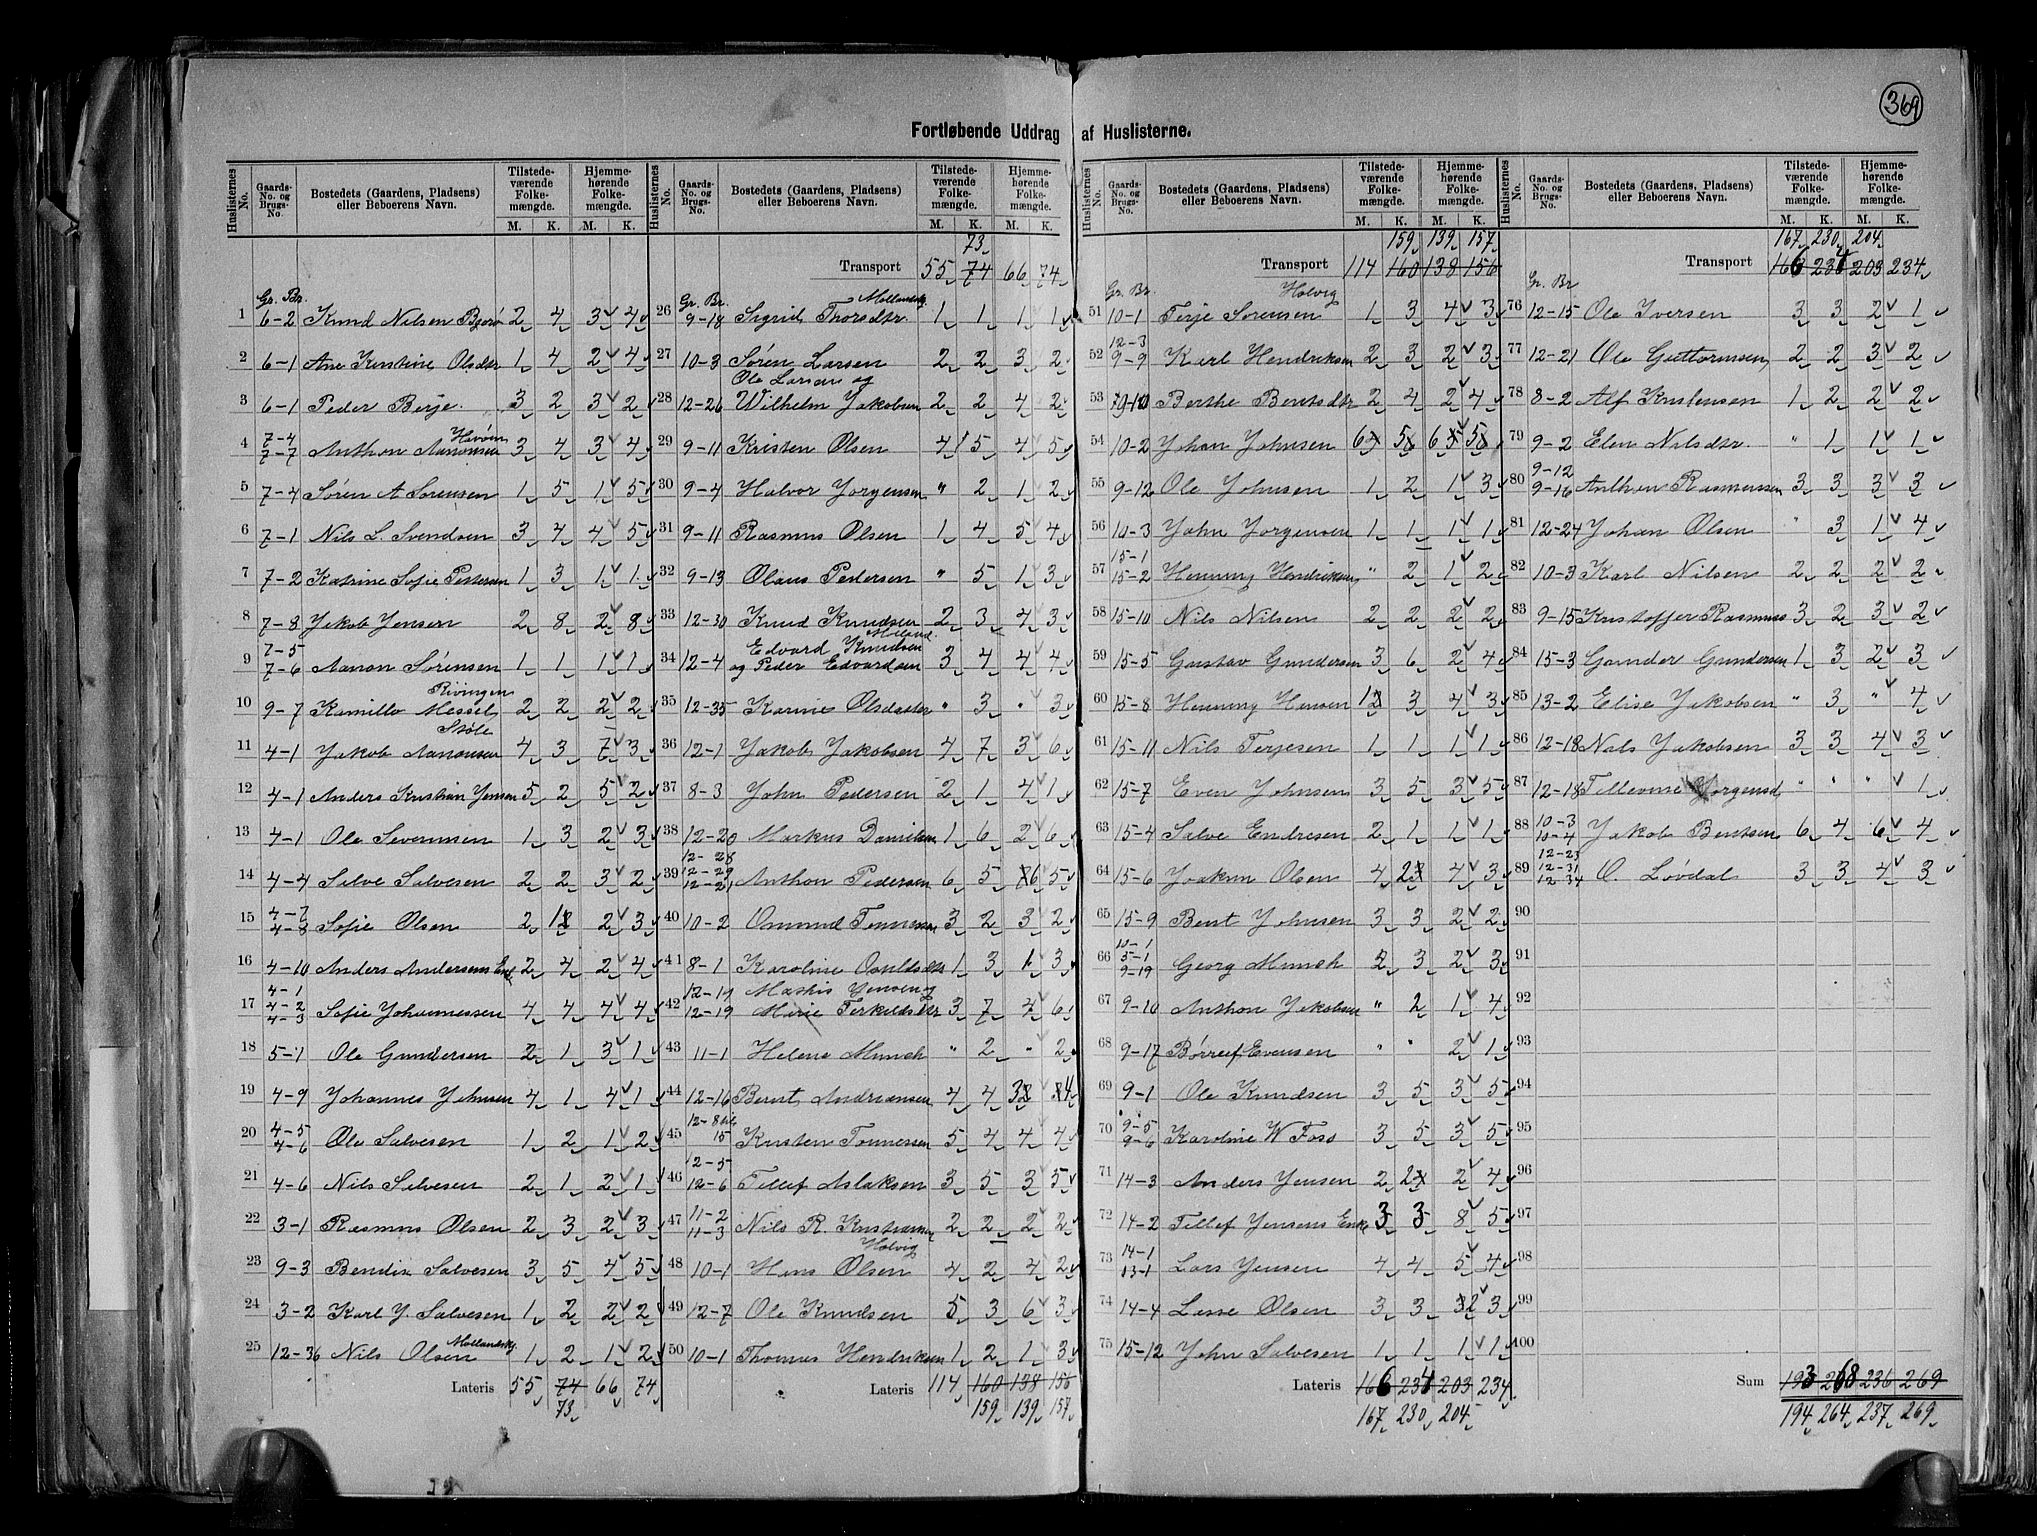 369
Fortløbende Uddrag af Huslisterne.
Huslisternes No. Gaards- No. og Brugs- No. Bostedets (Gaardens, Pladsens) eller Beboerens Navn. Tilstede- værende Folke- mængde. M. K. Hjemme- hørende Folke- mængde. M. K.
Gr. Br.
1 6-2 Knud Nilsen Bjorø 2 4 3 4
2 6-1 Ane Kirstine Olsdtr 1 4 2 4
3 6-1 Peder Berje 3 2 3 2
4 7-4 7-7 Anthon Aanonsen Havøen 3 4 3 4
5 7-4 Søren A Sørensen 1 5 1 5
6 7-1 Nils L. Svendsen 3 4 4 5
7 7-2 Katrine Sofie Petersen 1 3 1 1
8 7-8 Jakob Jensen 2 8 2 8
9 7-5 7-6 Aanon Sørensen 1 1 1 1
10 9-7 Kamillo Messel Rivingen 2 2 2 2
11 4-1 Jakob Aanonsen Støle 4 3 7 3
12 4-1 Anders Kristian Jensen 5 2 5 2
13 4-1 Ole Severinsen 1 3 2 3
14 4-4 Salve Salvesen 2 2 3 2
15 4-7 4-8 Sofie Olsen 2 1 2 3
16 4-10 Anders Andersens Enk. 2 4 2 4
17 4-1 4-2 4-3 Sofie Johannessen 4 4 4 4
18 5-1 Ole Gundersen 2 1 3 1
19 4-9 Johannes Johnsen 4 1 4 1
20 4-5 4-6 Ole Salvesen 1 2 1 2
21 4-6 Nils Salvesen 2 1 2 1
22 3-1 Rasmus Olsen 2 3 2 3
23 9-3 Bendix Salvesen 3 5 4 5
24 3-2 Karl J. Salvesen 1 2 2 2
25 12-36 Nils Olsen Mollandsk. 1 2 1 2
Lateris 55 74 66 74
73
Huslisternes No. Gaards- No. og Brugs- No. Bostedets (Gaardens, Pladsens) eller Beboerens Navn. Tilstede- værende Folke- mængde. M. K. Hjemme- hørende Folke- mængde. M. K.
73
Transport 55 74 66 74
Gr. Br.
26 9-18 Sigrid Thorsdtr. Mollandsk. 1 1 1 1
27 10-3 Søren Larsen 2 2 3 2
Ole Larsen og
28 12-26 Wilhelm Jakobsen 2 2 4 2
29 9-11 Kristen Olsen 4 5 4 5
30 9-4 Halvor Jørgensen " 2 1 2
31 9-11 Rasmus Olsen 1 4 5 4
32 9-13 Olaus Pedersen " 5 1 3
33 12-30 Knud Knudsen 2 3 4 3
Edvard Knudsen Molland
34 12-4 og Peder Edvardsen 3 4 4 4
35 12-35 Karine Olsdatter " 3 " 3
36 12-1 Jakob Jakobsen 4 7 3 6
37 8-3 John Pedersen 2 1 4 1
38 12-20 Markus Danielsen 1 6 2 6
39 12-28 12-29 12-21 Anthon Pedersen 6 5 6 5
40 10-2 Omund Tønnesen 3 2 3 2
41 8-1 Karoline Osuldsdtr 1 3 1 3
12-14 Mathis Jensen og
42 12-19 Marie Terkildsdtr 3 7 4 6
43 11-1 Helene Munch " 2 " 2
44 12-16 Bernt Andreassen 4 4 3 4
45 12-8 til 15 Kristen Tønnessen 5 4 4 4
46 12-5 12-6 Tellef Aslaksen 3 5 3 5
47 11-2 11-3 Nils R. Kristiansen 2 2 2 2
48 10-1 Hans Olsen Holvig 4 2 4 2
49 12-7 Ole Knudsen 5 3 6 3
50 10-1 Thomas Hendriksen 1 2 1 3
Lateris 114 160 138 156
159 139 157
Huslisternes No. Gaards- No. og Brugs- No. Bostedets (Gaardens, Pladsens) eller Beboerens Navn. Tilstede- værende Folke- mængde. M. K. Hjemme- hørende Folke- mængde. M. K.
159 139 157
Transport 114 160 138 156
Gr. Br.
51 10-1 Terje Sørensen Holvig 1 3 4 3
52 12-3 9-9 Karl Hendriksen 2 3 2 3
53 9-10 Berthe Berntsdtr 2 4 2 4
54 10-2 Johan Johnsen 6 5 6 5
55 9-12 Ole Johnsen 1 2 1 3
56 10-3 John Jørgensen 1 1 1 1
57 15-1 15-2 Henning Hendriksen " 2 1 2
58 15-10 Nils Nilsen 2 2 2 2
59 15-5 Gustav Gundersen 3 6 2 4
60 15-8 Henning Hansen 1 3 4 3
61 15-11 Nils Terjesen 1 1 1 1
62 15-7 Even Johnsen 3 5 3 5
63 15-4 Salve Endresen 2 1 1 1
64 15-6 Joakim Olsen 4 2 4 3
65 15-9 Bent Johnsen 3 3 2 2
66 10-1 5-1 9-19 Georg Munch 2 3 2 3
67 9-10 Anthon Jakobsen " 2 1 4
68 9-17 Børruf Evensen " " 2 1
69 9-1 Ole Knudsen 3 5 3 5
70 9-5 9-6 Karoline W Foss 3 5 3 5
71 14-3 Anders Jensen 2 2 2 4
72 14-2 Tellef Jensens Enke 3 3 8 5
73 14-1 13-1 Lars Jensen 4 4 5 4
74 14-4 Lasse Olsen 3 3 2 3
75 15-12 John Salvesen 1 1 1 1
Lateris 166 234 203 234
167 230 204
Huslisternes No. Gaards- No. og Brugs- No. Bostedets (Gaardens, Pladsens) eller Beboerens Navn. Tilstede- værende Folke- mængde. M. K. Hjemme- hørende Folke- mængde. M. K.
167 230 204
Transport 166 234 203 234
Gr. Br
76 12-15 Ole Iversen 3 3 2 1
77 12-21 Ole Guttormsen 2 2 3 2
78 8-2 Alf Knudsen 1 2 2 2
79 9-2 Elen Nilsdtr. " 1 1 1
80 9-12 9-16 Anthon Rasmussen 3 3 3 3
81 12-24 Johan Olsen " 3 1 4
82 10-3 Karl Nilsen 2 2 2 2
83 9-15 Kristoffer Rasmus 3 2 3 2
84 15-3 Gunder Gundersen 1 3 2 3
85 13-2 Elise Jakobsen " 3 " 4
86 12-18 Nils Jakobsen 3 3 4 3
87 12-18 Tellevine Jørgensd. " " " 1
88 10-3 10-4 Jakob Bentsen 6 4 6 4
89 12-23 12-31 12-34 O. Løvdal 3 3 4 3
90
91
92
93
94
95
96
97
98
99
100
Sum 193 268 236 269
194 264 237 269